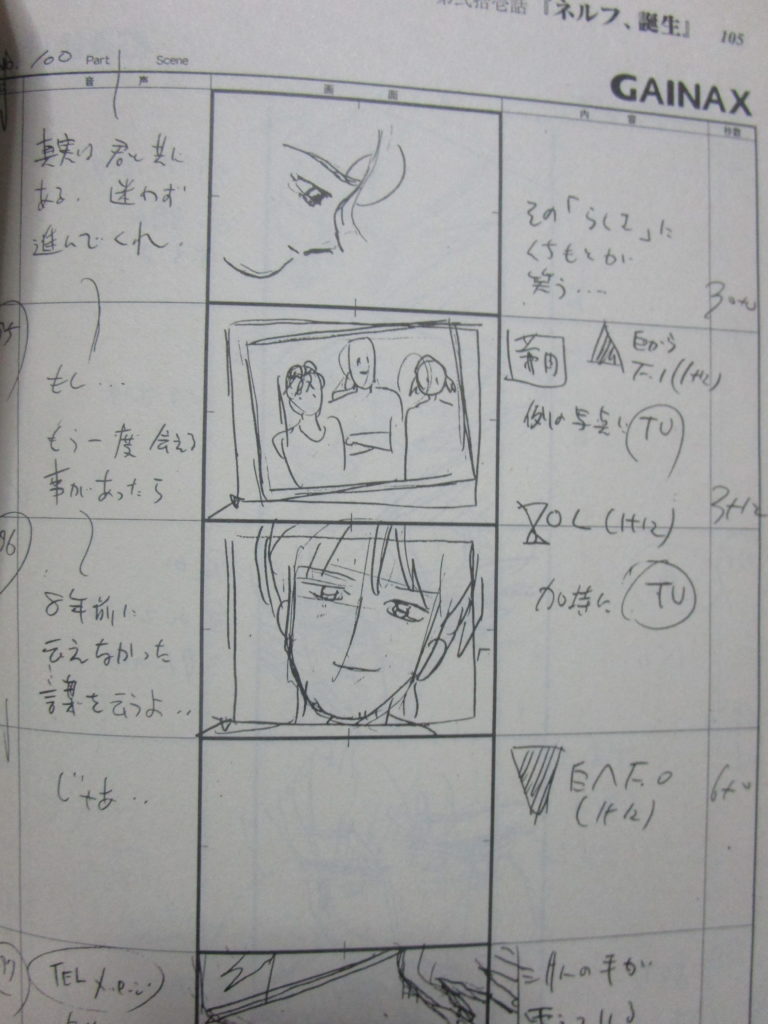 第弐拾壱話『ネルフ、誕生』 105
100 Part Scene
GAINAX
音声
画面
内容
秒数
真実は 君と共に
ある. 迷わず
進んでくれ.
その「らしくて」に
くちもとが
笑う‥‥
もし…
もう一度 会える
事があったら
白から
F.I(1+12)
例の写真に TU
3+12
OL(1+12)
96
8年前に
云えなかった
言葉を云うよ‥
加持に TU
じゃあ‥
白へF.O
(1+12)
6+0
TEL